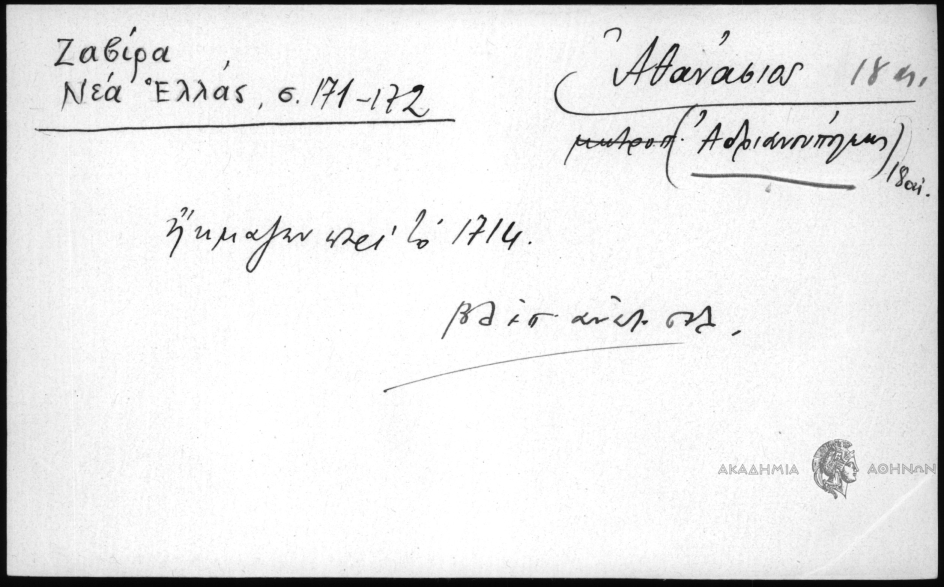 Ζαβίρα
Νέα Ἑλλάς, σ. 171-172
Ἀθανάσιος 18 αι.
μητροπ. (Ἀδριανουπόλεως) 18 αι.
ἤκμαζεν περὶ τὸ 1714.
βλέπ ἀνωτ. σελ.
ΑΚΑΔΗΜΙΑ ΑΘΗΝΩΝ